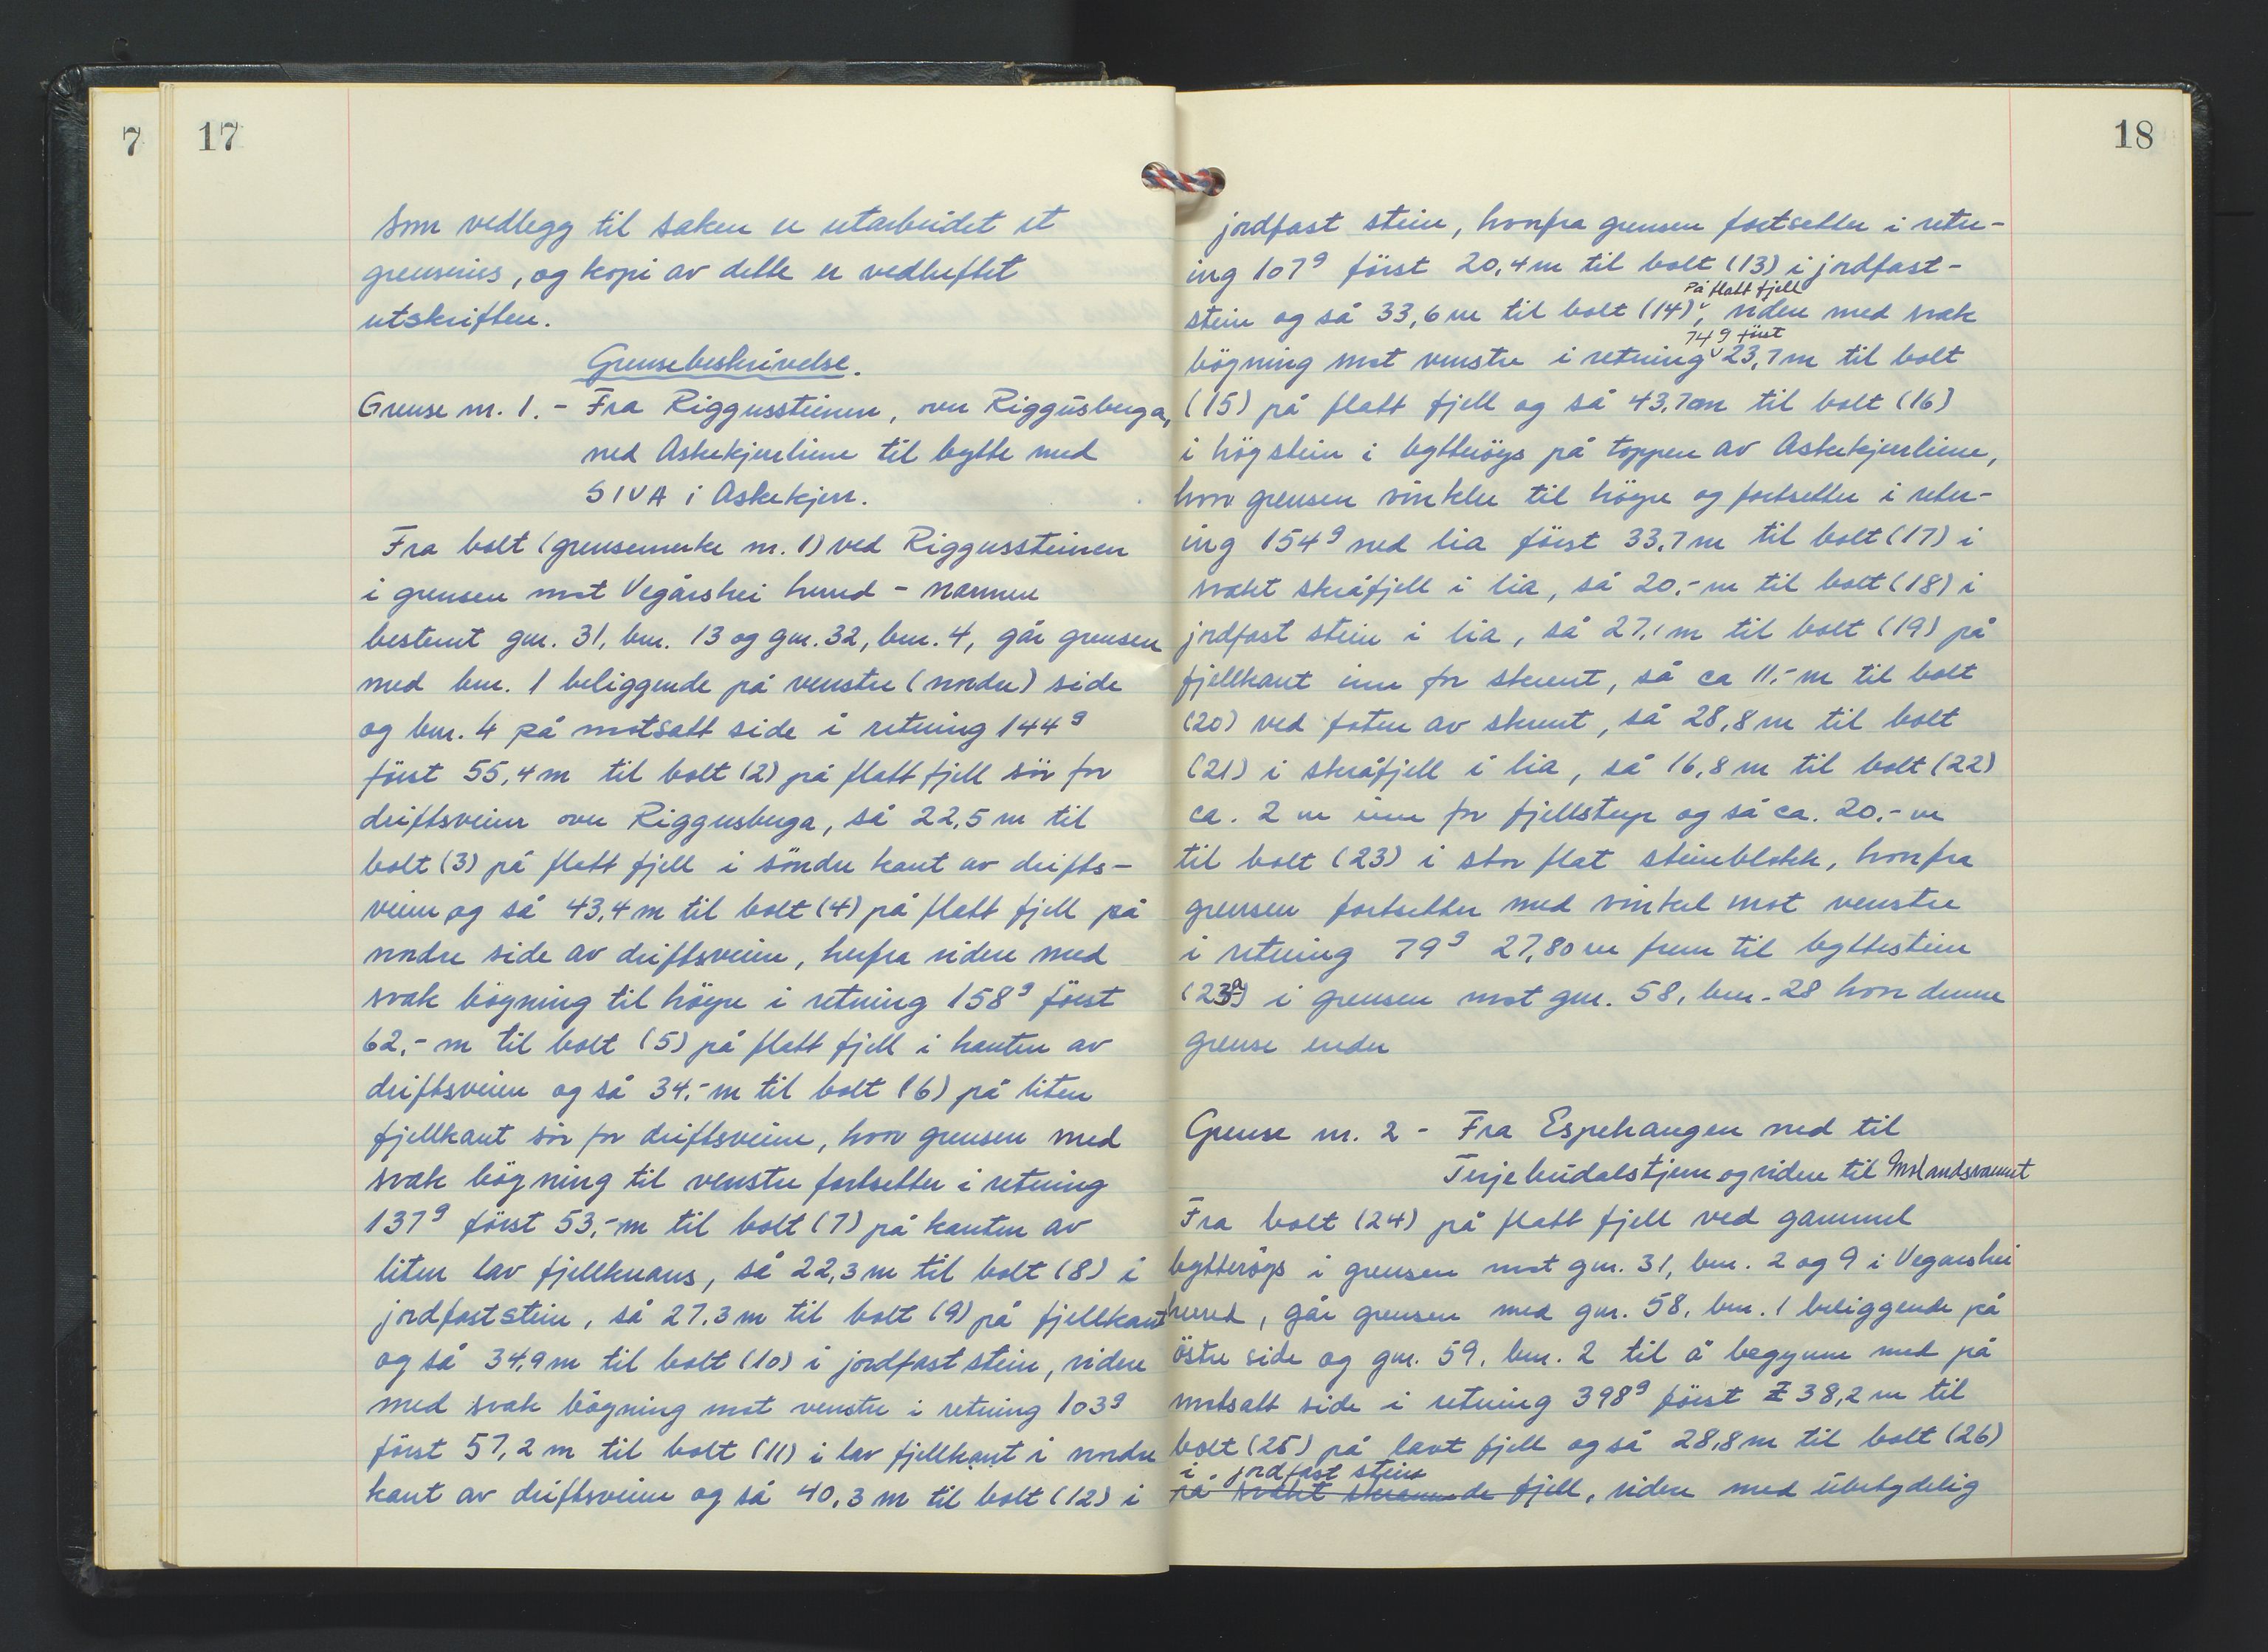 7
17
Som vedlegg til saken er utarbeidet et
grenseriss, og kopi av dette er vedheftet
utskriften.
Grensebeskrivelse.
Grense nr. 1. - Fra Riggussteinen, over Riggusberga,
ned Askekjerrliene til bytte med
SIVA i Askekjerr.
Fra bolt (grensemerke nr. 1) ved Riggussteinen
i grensen mot Vegårshei herred - nærmere
bestemt gnr. 31, bnr. 13 og gnr. 32, bnr. 4, går grensen
med bnr. 1 beliggende på venstre (nordre) side
og bnr. 4 på motsatt side i retning 144ᵍ
först 55,4 m til bolt (2) på flatt fjell sör for
driftsveien over Riggusberga, så 22,5 m til
bolt (3) på flatt fjell i söndre kant av drifts-
veien og så 43,4 m til bolt (4) på flatt fjell på
nordre side av driftsveien, herfra videre med
svak bögning til högre i retning 158ᵍ först
62,- m til bolt (5) på flatt fjell i kanten av
driftsveien og så 34,- m til bolt (6) på liten
fjellkant sör for driftsveien, hvor grensen med
svak bögning til venstre fortsetter i retning
137ᵍ först 53,- m til bolt (7) på kanten av
liten lav fjellknaus, så 22,3 m til bolt (8) i
jordfast stein, så 27,3 m til bolt (9) på fjellkant
og så 34,9 m til bolt (10) i jordfast stein, videre
med svak bögning mot venstre i retning 103ᵍ
först 57,2 m til bolt (11) i lav fjellkant i nordre
kant av driftsveien og så 40,3 m til bolt (12) i
18
jordfast stein, hvorfra grensen fortsetter i retn-
ing 107ᵍ först 20,4 m til bolt (13) i jordfast-
På flatt fjell
stein og så 33,6 m til bolt (14), videre med svak
74ᵍ först
bögning mot venstre i retning 23,7 m til bolt
(15) på flatt fjell og så 43,7 m til bolt (16)
i hög stein i bytteröys på toppen av Askekjerrliene,
hvor grensen vinkler til högre og fortsetter i retn-
ing 154ᵍ ned lia först 33,7 m til bolt (17) i
svakt skråfjell i lia, så 20,- m til bolt (18) i
jordfast stein i lia, så 27,1 m til bolt (19) på
fjellkant inn for skrent, så ca 11,- m til bolt
(20) ved foten av skrent, så 28,8 m til bolt
(21) i skråfjell i lia, så 16,8 m til bolt (22)
ca. 2 m inn for fjellstup og så ca. 20,- m
til bolt (23) i stor flat steinblokk, hvorfra
grensen fortsetter med vinkel mot venstre
i retning 79ᵍ 27,80 m frem til byttestein
(23a) i grensen mot gnr. 58, bnr. 28 hvor denne
grense ender
Grense nr. 2 - Fra Espehaugen ned til
Terjebudalstjern og videre til Molandsvannet
Fra bolt (24) på flatt fjell ved gammel
bytteröys i grensen mot gnr. 31, bnr. 2 og 9 i Vegarshei
herred, går grensen med gnr. 58, bnr. 1 beliggende på
östre side og gnr. 59, bnr. 2 til å begynne med på
motsatt side i retning 398ᵍ först 38,2 m til
bolt (25) på lavt fjell og så 28,8 m til bolt (26)
i jordfast stein
på svakt skrånende fjell, videre med ubetydelig